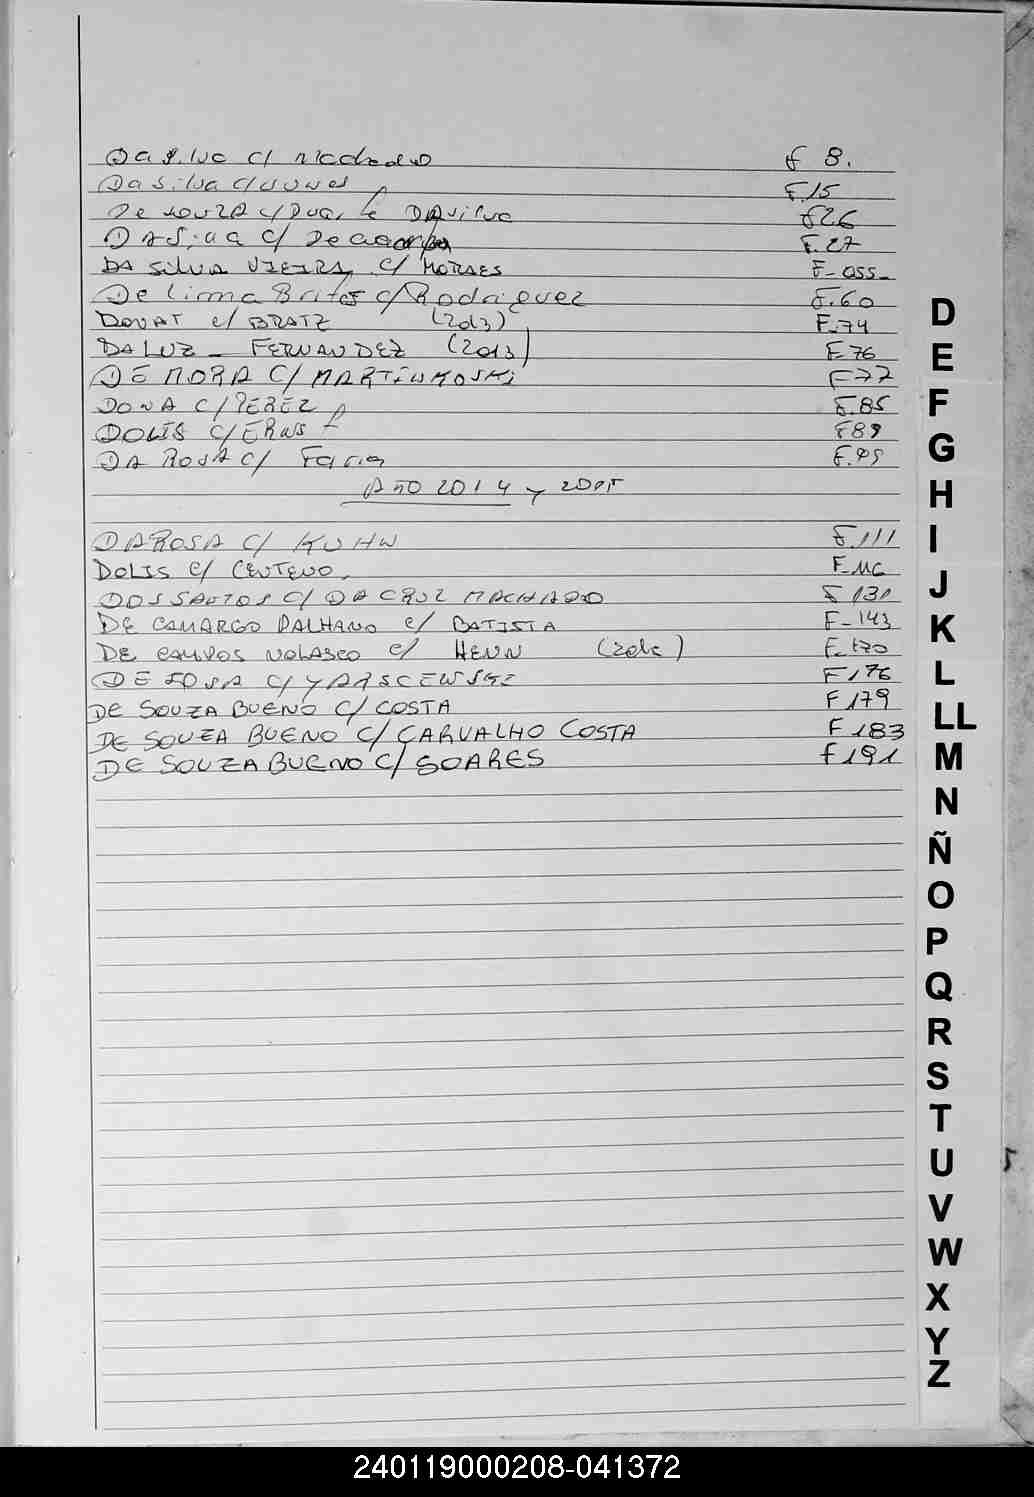 Da Silva c/ Machado F 8.
Da Silva c/ Nunes F.15
De Souza c/ Da Silva F26
Da Silva c/ F.27
DA SILVA VIEIRA c/ MORAES F-055-
De Lima Brites c/ Rodriguez F.60
DONAT c/ BRATZ (2013) F.74
DA LUZ - FERNANDEZ (2013) F 76
DE MORA C/ MARTINKOSKI F77
DONA C/ PEREZ F.85
DOLIS C/ ERNS F89
DA ROSA C/ Faria F.95
AÑO 2014 y 2015
DA ROSA C/ KUHN F.111
DOLIS C/ CENTENO.
DOS SANTOS C/ DA CRUZ MACHADO F 131
DE CAMARGO PALHANO c/ BATISTA F-143
DE CAMPOS NOLASCO c/ HENN F-170
DE C/ F176
DE SOUZA BUENO C/ COSTA F 179
DE SOUZA BUENO C/ CARVALHO COSTA F 183
DE SOUZA BUENO C/ SOARES F 191
D
E
F
G
H
I
J
K
L
LL
M
N
Ñ
O
P
Q
R
S
T
U
V
W
X
Y
Z
240119000208-041372